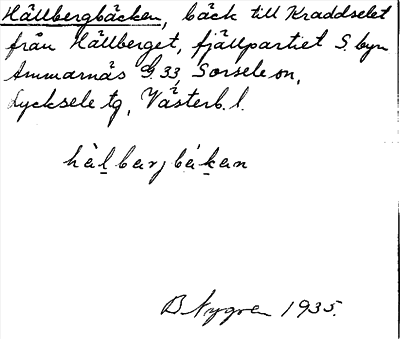 Hällbergbäcken, bäck till Kraddselet
från Hällberget, fjällpartiet S. byn
Ammarnäs G 33, Sorsele sn,
Lycksele tg, Västerb. l.
hälbarjbäkan
B Nygren 1935.